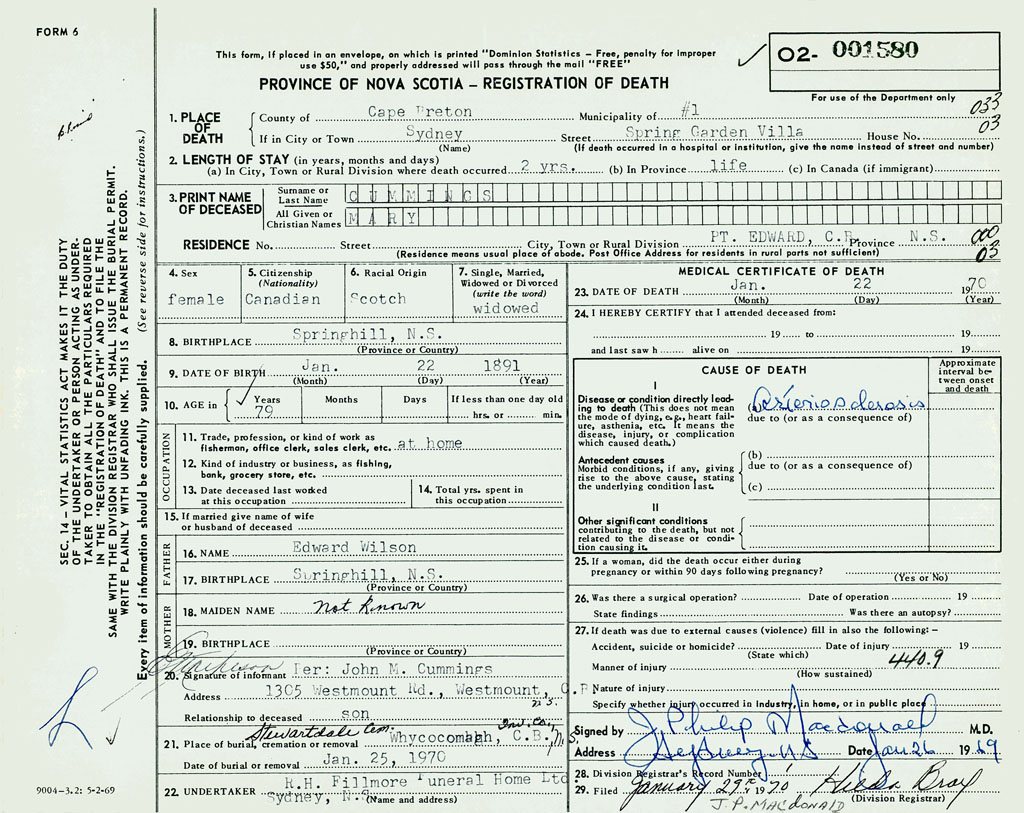 FORM 6
This form, if placed in an envelope, on which is printed "Dominion Statistics – Free, penalty for improper
use $50," and properly addressed will pass through the mail "FREE"
O2- 001580
PROVINCE OF NOVA SCOTIA – REGISTRATION OF DEATH
For use of the Department only
033
03
1. PLACE OF DEATH
County of Cape Breton Municipality of #1
If in City or Town Sydney Street Spring Garden Villa House No.
(Name) (If death occurred in a hospital or institution, give the name instead of street and number)
2. LENGTH OF STAY (in years, months and days)
(a) In City, Town or Rural Division where death occurred 2 yrs. (b) In Province life (c) In Canada (if immigrant)
3. PRINT NAME OF DECEASED
Surname or Last Name CUMMINGS
All Given or Christian Names MARY
RESIDENCE No. Street City, Town or Rural Division PT. EDWARD, C.B. Province N.S. 000
(Residence means usual place of abode. Post Office Address for residents in rural parts not sufficient) 03
4. Sex
female
5. Citizenship
(Nationality)
Canadian
6. Racial Origin
Scotch
7. Single, Married,
Widowed or Divorced
(write the word)
widowed
8. BIRTHPLACE Springhill, N.S.
(Province or Country)
9. DATE OF BIRTH Jan. 22 1891
(Month) (Day) (Year)
10. AGE in Years 79 Months Days If less than one day old
hrs. or min.
OCCUPATION
11. Trade, profession, or kind of work as
fisherman, office clerk, sales clerk, etc. at home
12. Kind of industry or business, as fishing,
bank, grocery store, etc.
13. Date deceased last worked
at this occupation
14. Total yrs. spent in
this occupation
15. If married give name of wife
or husband of deceased
FATHER
16. NAME Edward Wilson
17. BIRTHPLACE Springhill, N.S.
(Province or Country)
MOTHER
18. MAIDEN NAME Not Known
19. BIRTHPLACE
(Province or Country)
20. Signature of informant Per: John M. Cummings
Address 1305 Westmount Rd., Westmount, C.B.
N.S.
Relationship to deceased son
Stewartdale Cem. Inv. Co.
21. Place of burial, cremation or removal Whycocomagh, C.B. N.S.
Date of burial or removal Jan. 25, 1970
22. UNDERTAKER R.H. Fillmore Funeral Home Ltd
Sydney, N.S. (Name and address)
MEDICAL CERTIFICATE OF DEATH
23. DATE OF DEATH Jan. 22 1970
(Month) (Day) (Year)
24. I HEREBY CERTIFY that I attended deceased from:
19 to 19
and last saw h alive on 19
CAUSE OF DEATH
Approximate
interval be-
tween onset
and death
I
Disease or condition directly lead-
ing to death (This does not mean
the mode of dying, e.g., heart failure,
asthenia, etc. It means the
disease, injury, or complication
which caused death.)
(a) Arteriosclerosis
due to (or as a consequence of)
Antecedent causes
Morbid conditions, if any, giving
rise to the above cause, stating
the underlying condition last.
(b)
due to (or as a consequence of)
(c)
II
Other significant conditions
contributing to the death, but not
related to the disease or condi-
tion causing it.
25. If a woman, did the death occur either during
pregnancy or within 90 days following pregnancy?
(Yes or No)
26. Was there a surgical operation? Date of operation 19
State findings Was there an autopsy?
27. If death was due to external causes (violence) fill in also the following: –
Accident, suicide or homicide? Date of injury 19
(State which) 440.9
Manner of injury
(How sustained)
Nature of injury
Specify whether injury occurred in industry, in home, or in public place
Signed by J. Philip Macdonald M.D.
Address Sydney, NS Date Jan 26 1969
28. Division Registrar's Record Number
29. Filed January 29th 1970 Hilda Bray
(Division Registrar)
J.P. MACDONALD
SEC. 14 – VITAL STATISTICS ACT MAKES IT THE DUTY
OF THE UNDERTAKER OR PERSON ACTING AS UNDER-
TAKER TO OBTAIN ALL THE PARTICULARS REQUIRED
IN THE "REGISTRATION OF DEATH" AND TO FILE THE
SAME WITH THE DIVISION REGISTRAR WHO SHALL ISSUE THE BURIAL PERMIT.
WRITE PLAINLY WITH UNFADING INK. THIS IS A PERMANENT RECORD.
Every item of information should be carefully supplied. (See reverse side for instructions.)
9004-3.2: 5-2-69